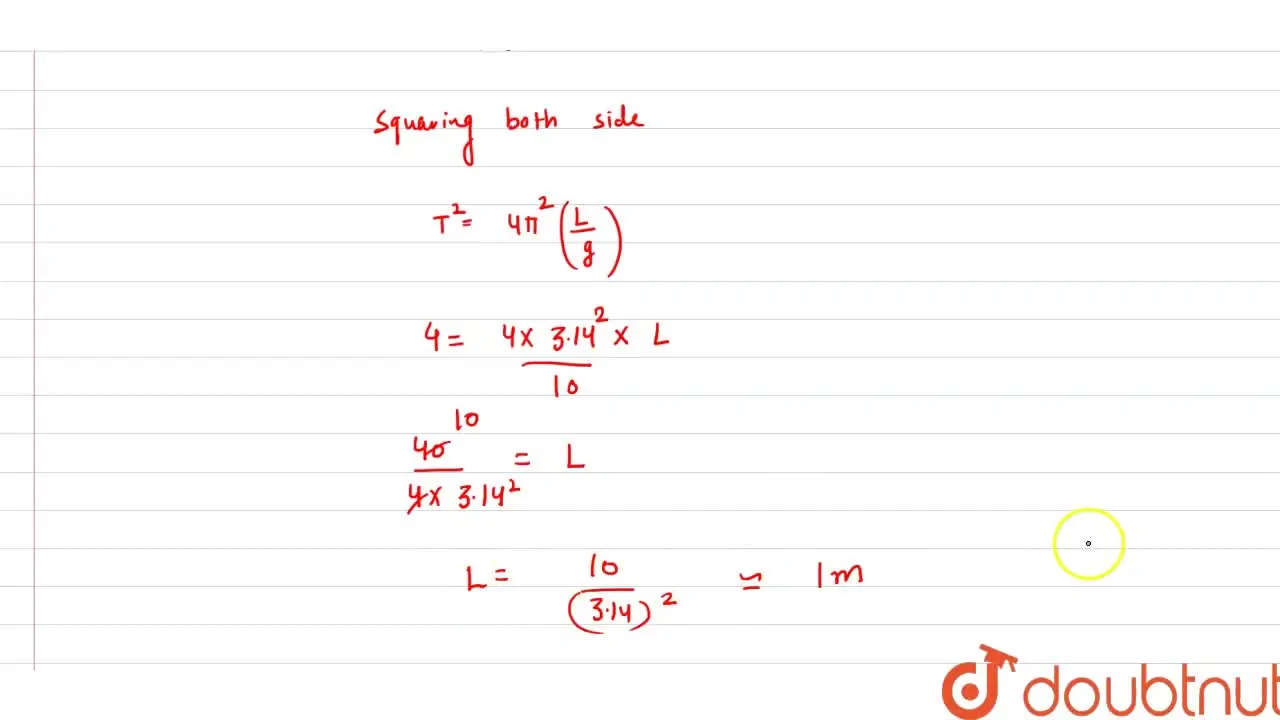 Squaring both side
T² = 4π² (L/g)
4 = 4x 3.14² x L
10
10
40 = L
4x 3.14²
L = 10 ≃ 1m
(3.14)²
doubtnut